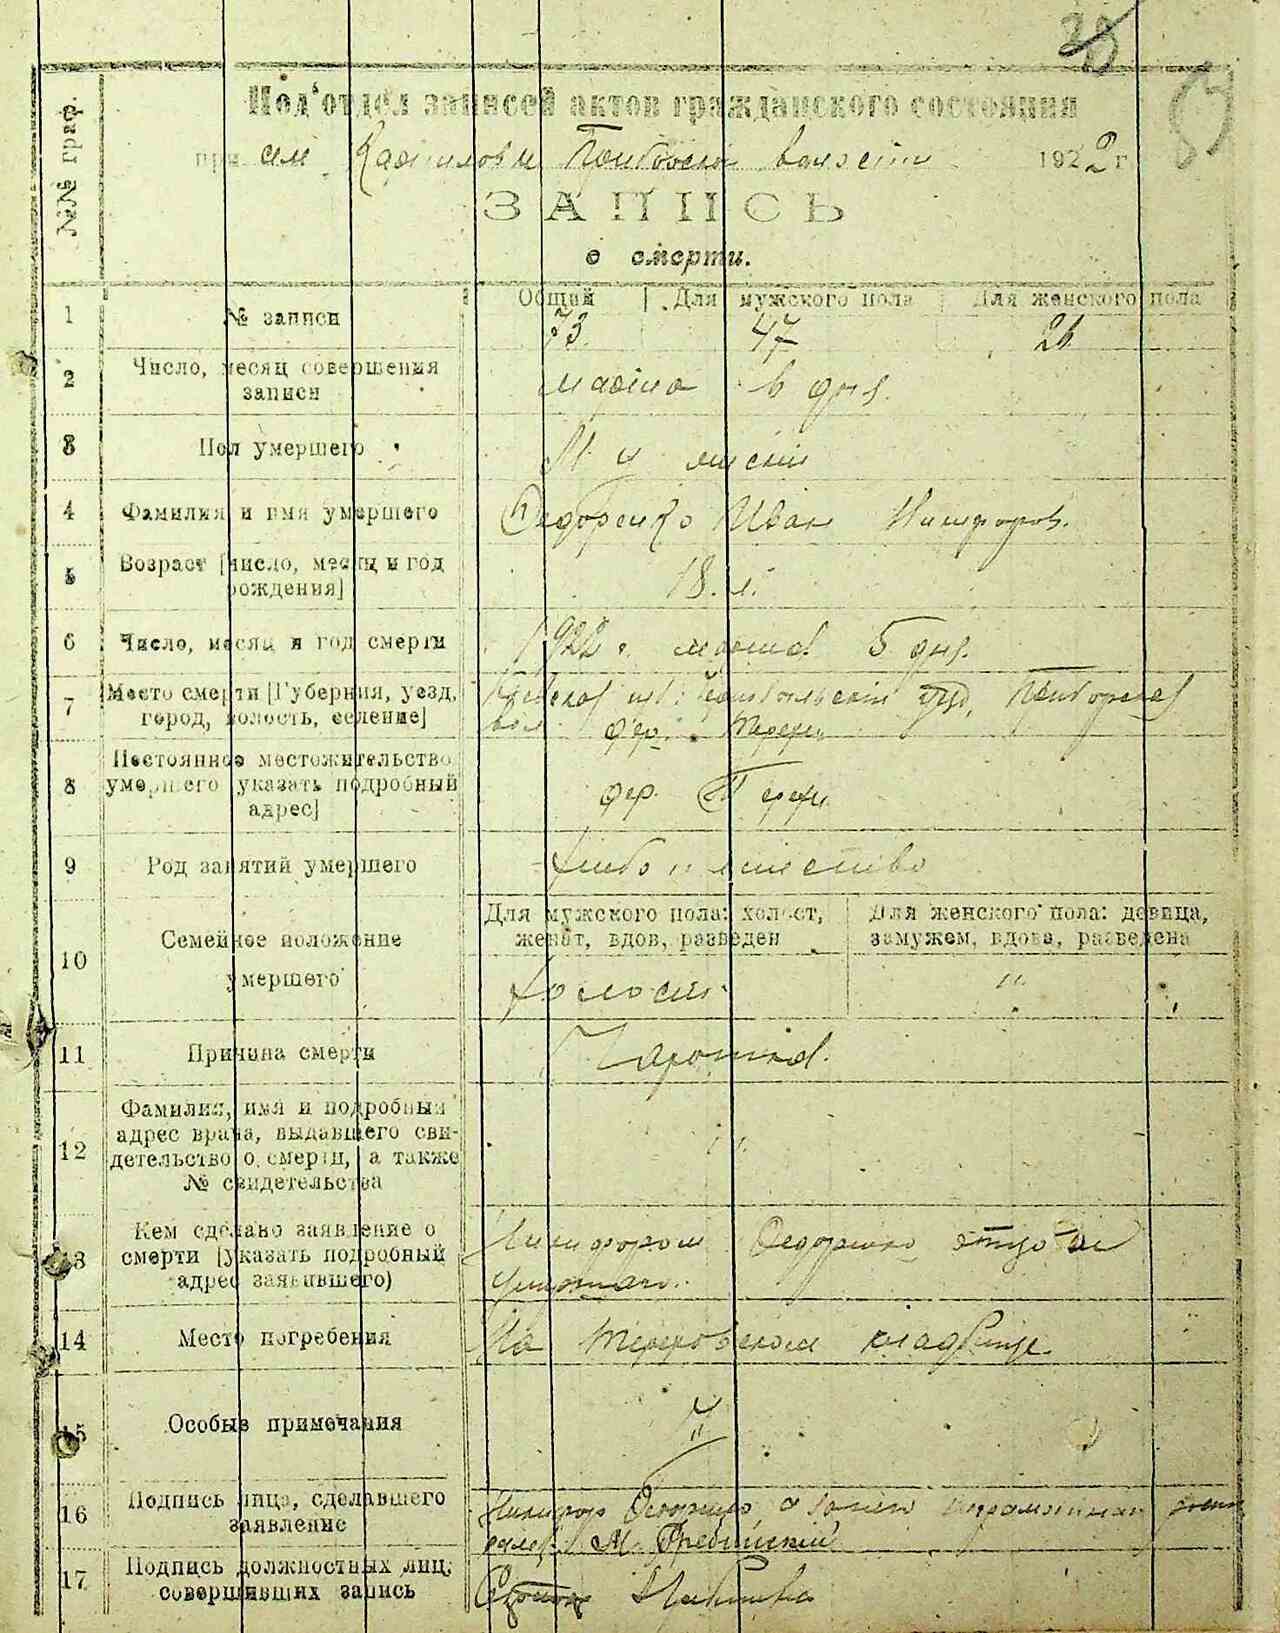 39
№№ граф.
Под'отдел записей актов гражданского состояния
при волости 1922 г
ЗАПИСЬ
о смерти.
Общий Для мужского пола Для женского пола
1 № записи 73 47 26
2 Число, месяц совершения
записи марта 6 дня.
3 Пол умершего Мужский
4 Фамилия и имя умершего Федоренко Иван Никифоров.
5 Возраст [число, месяц и год
рождения] 18 л.
6 Число, месяц и год смерти 1922 г. марта 5 дня.
7 Место смерти [Губерния, уезд,
город, волость, селение] дер.
8 Постоянное местожительство
умершего [указать подробный
адрес] дер.
9 Род занятий умершего хлебопашество
10 Семейное положение
умершего
Для мужского пола: холост,
женат, вдов, разведен
Для женского пола: девица,
замужем, вдова, разведена
холост "
11 Причина смерти Чахотка.
12 Фамилия, имя и подробный
адрес врача, выдавшего сви-
детельство о смерти, а также
№ свидетельства "
13 Кем сделано заявление о
смерти [указать подробный
адрес заявившего)
Никифором Федоренко отцом
умершаго.
14 Место погребения На кладбище.
15 Особые примечания "
16 Подпись лица, сделавшего
заявление
Никифор Федоренко, а за него неграмотнаго
М.
17 Подпись должностных лиц,
совершивших запись